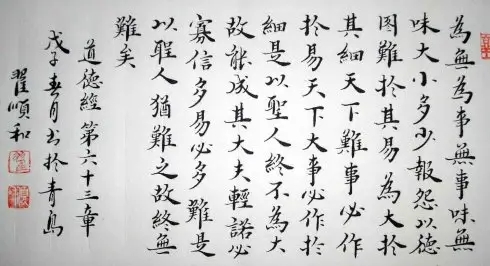 為無為事無事味無
味大小多少報怨以德
图難於其易為大於
其細天下難事必作
於易天下大事必作於
細是以聖人終不為大
故能成其大夫輕諾必
寡信多易必多難是
以聖人猶難之故終無
難矣
道德經第六十三章
戊子春月书於青島
翟順和